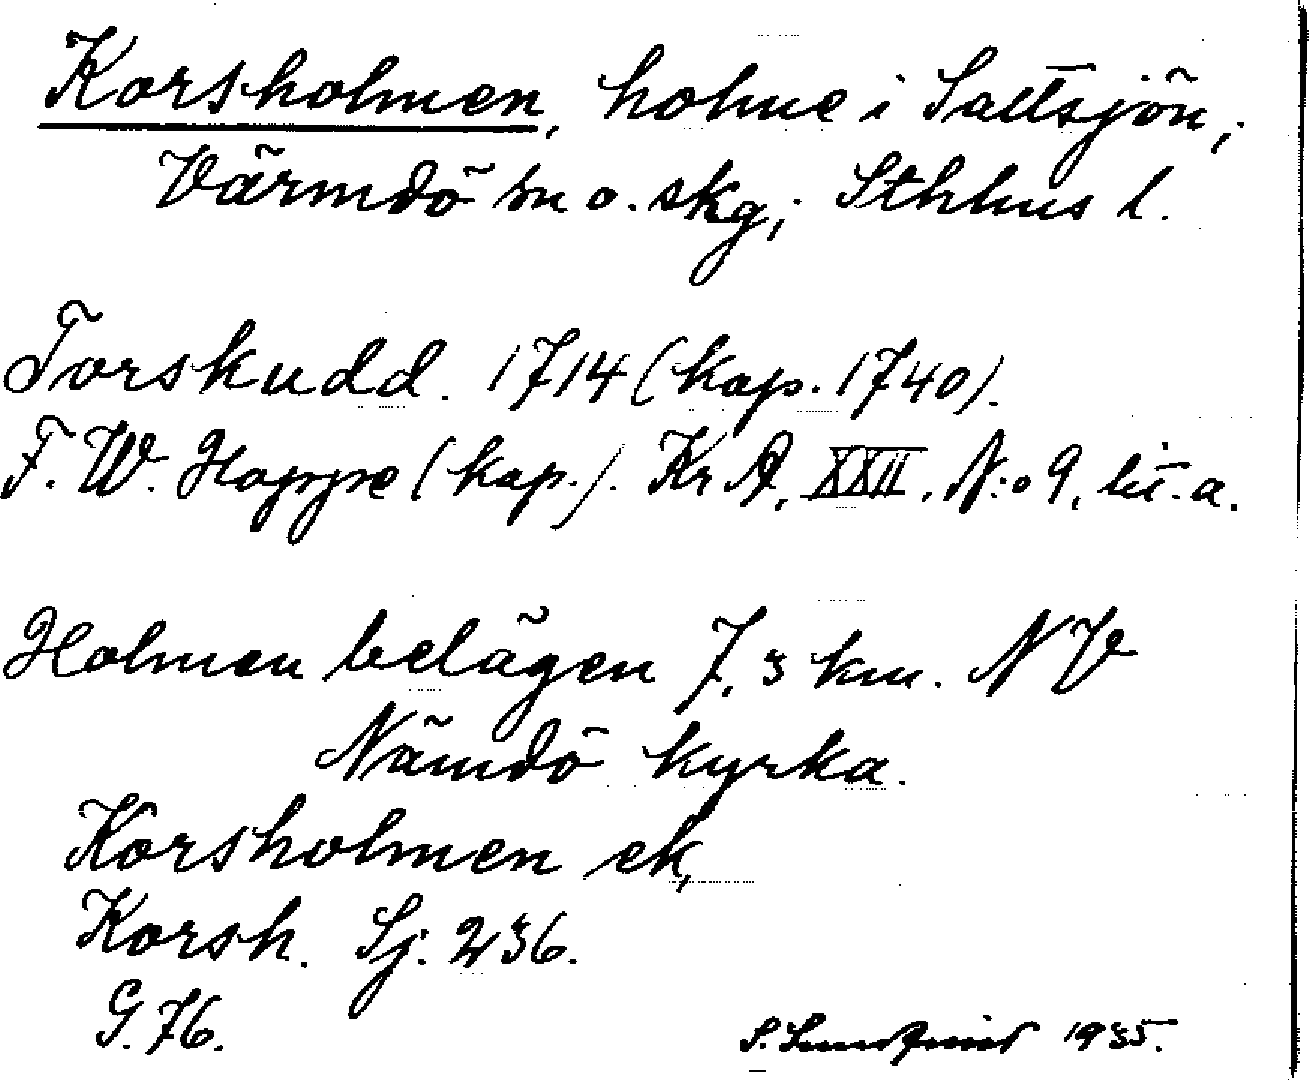 Korsholmen, holme i Saltsjön,
Värmdö sn o. skg, Sthlms l.
Torskudd. 1714 (kap. 1740).
F. W. Hoppe (kap.). Kr A, XXII, N:o 9, lit. a.
Holmen belägen 7,3 km. NV
Nämdö kyrka.
Korsholmen ek,
Korsh. Sj. 236.
G. 76.
S. Lundqvist 1935.